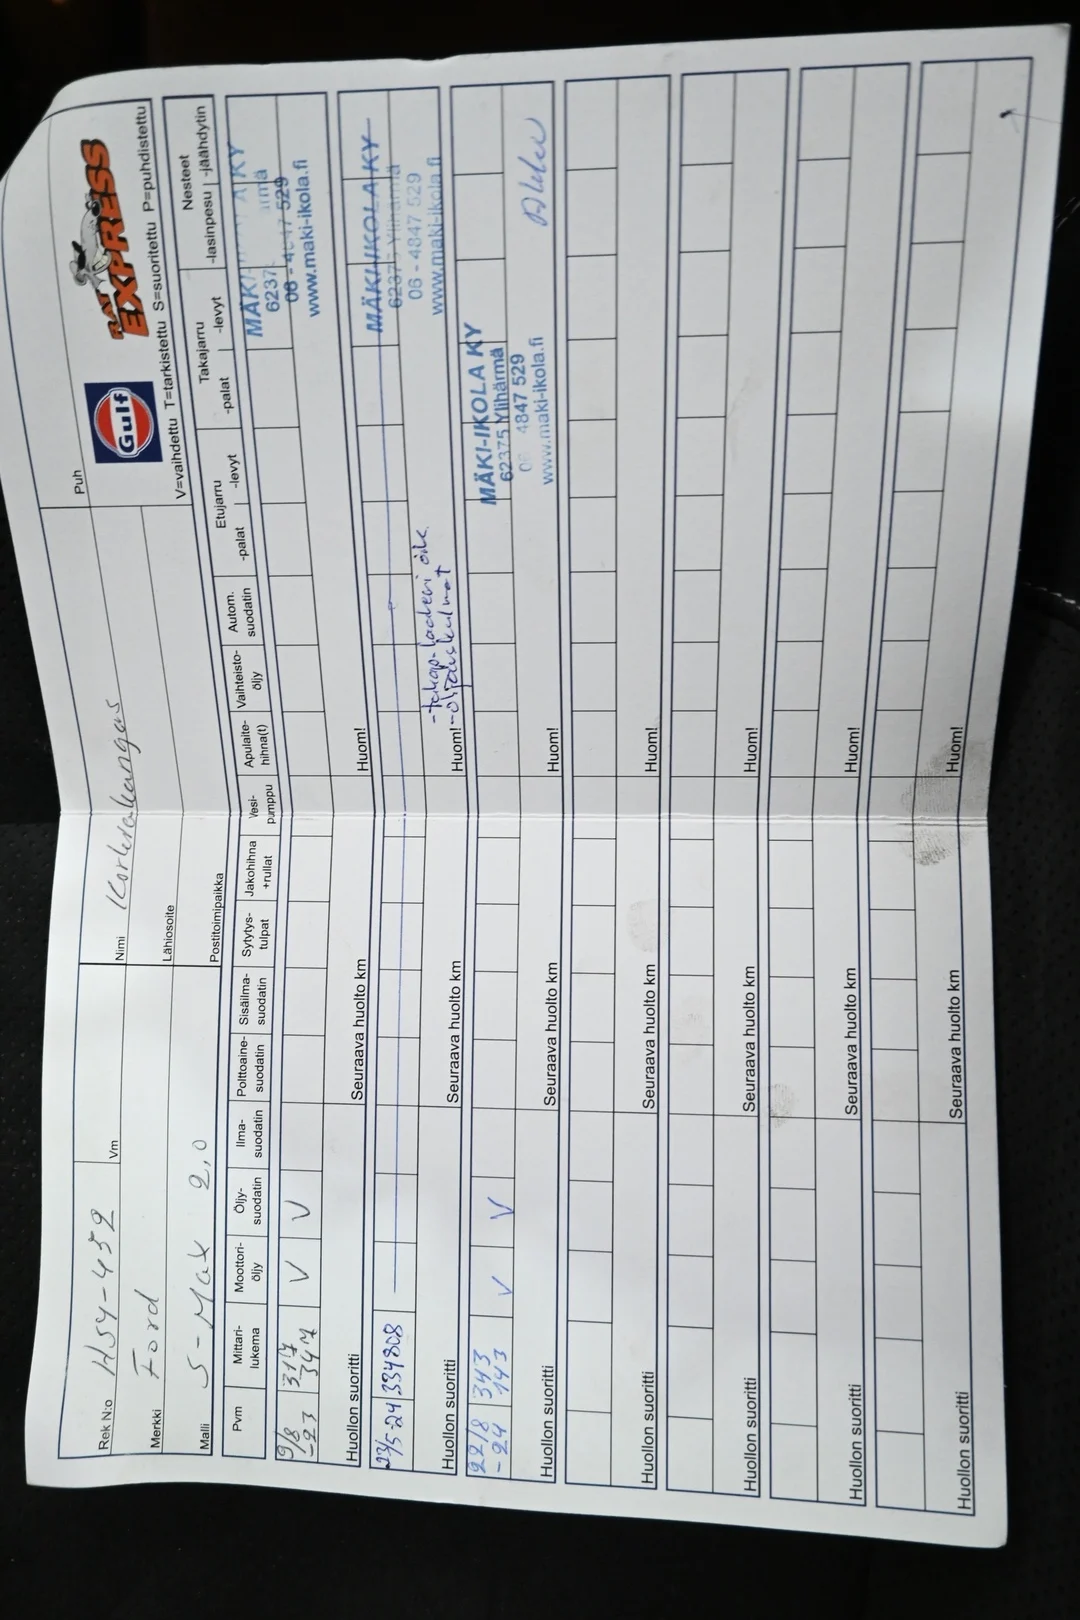 Rek N:o HSY-452 Vm
Nimi
Puh
Merkki Ford
Lähiosoite
Malli S-Max 2,0
Postitoimipaikka
Gulf
RAT EXPRESS
V=vaihdettu T=tarkistettu S=suoritettu P=puhdistettu
Pvm
Mittari-
lukema
Moottori-
öljy
Öljy-
suodatin
Ilma-
suodatin
Polttoaine-
suodatin
Sisäilma-
suodatin
Sytytys-
tulpat
Jakohihna
+rullat
Vesi-
pumppu
Apulaite-
hihna(t)
Vaihteisto-
öljy
Autom.
suodatin
Etujarru
-palat | -levyt
Takajarru
-palat | -levyt
Nesteet
-lasinpesu | -jäähdytin
9/8 317 V V
-23 347
MÄKI- A KY
6237 ärmä
06 - 4847 529
www.maki-ikola.fi
Huollon suoritti Seuraava huolto km Huom!
23/5-24 334808
MÄKI-IKOLA KY
62375 Ylihärmä
06 - 4847 529
www.maki-ikola.fi
-takap.
Huollon suoritti Seuraava huolto km Huom!
22/8 343 V V
-24 143
MÄKI-IKOLA KY
62375 Ylihärmä
06 4847 529
www.maki-ikola.fi
Huollon suoritti Seuraava huolto km Huom!
Huollon suoritti Seuraava huolto km Huom!
Huollon suoritti Seuraava huolto km Huom!
Huollon suoritti Seuraava huolto km Huom!
Huollon suoritti Seuraava huolto km Huom!